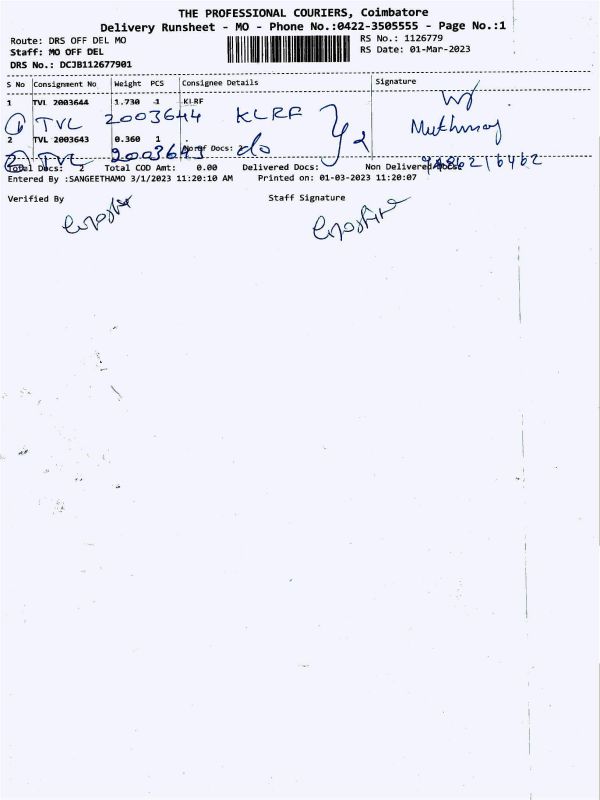 THE PROFESSIONAL COURIERS, Coimbatore
Delivery Runsheet - MO - Phone No.:0422-3505555 - Page No.:1
Route: DRS OFF DEL MO
RS No.: 1126779
Staff: MO OFF DEL
RS Date: 01-Mar-2023
DRS No.: DCJB112677901
S No Consignment No Weight PCS Consignee Details Signature
1 TVL 2003644 1.730 1 KLRF
1 TVL 2003644 KLRF
2 TVL 2003643 0.360 1
No of Docs:
2 TVL 2003643 do
Total Docs: 2 Total COD Amt: 0.00 Delivered Docs: Non Delivered Docs:
Entered By :SANGEETHAMO 3/1/2023 11:20:10 AM Printed on: 01-03-2023 11:20:07
Verified By Staff Signature